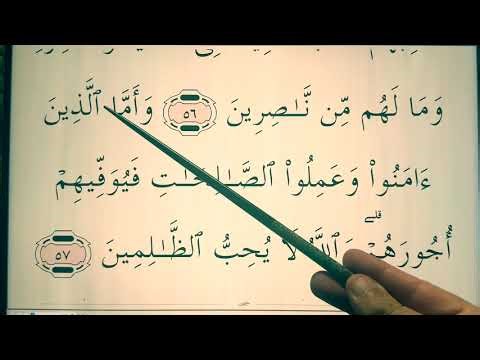 وَمَا لَهُم مِّن نَّـٰصِرِينَ ٥٦ وَأَمَّا ٱلَّذِينَ
ءَامَنُوا۟ وَعَمِلُوا۟ ٱلصَّـٰلِحَـٰتِ فَيُوَفِّيهِمْ
أُجُورَهُمْ ۗ وَٱللَّهُ لَا يُحِبُّ ٱلظَّـٰلِمِينَ ٥٧